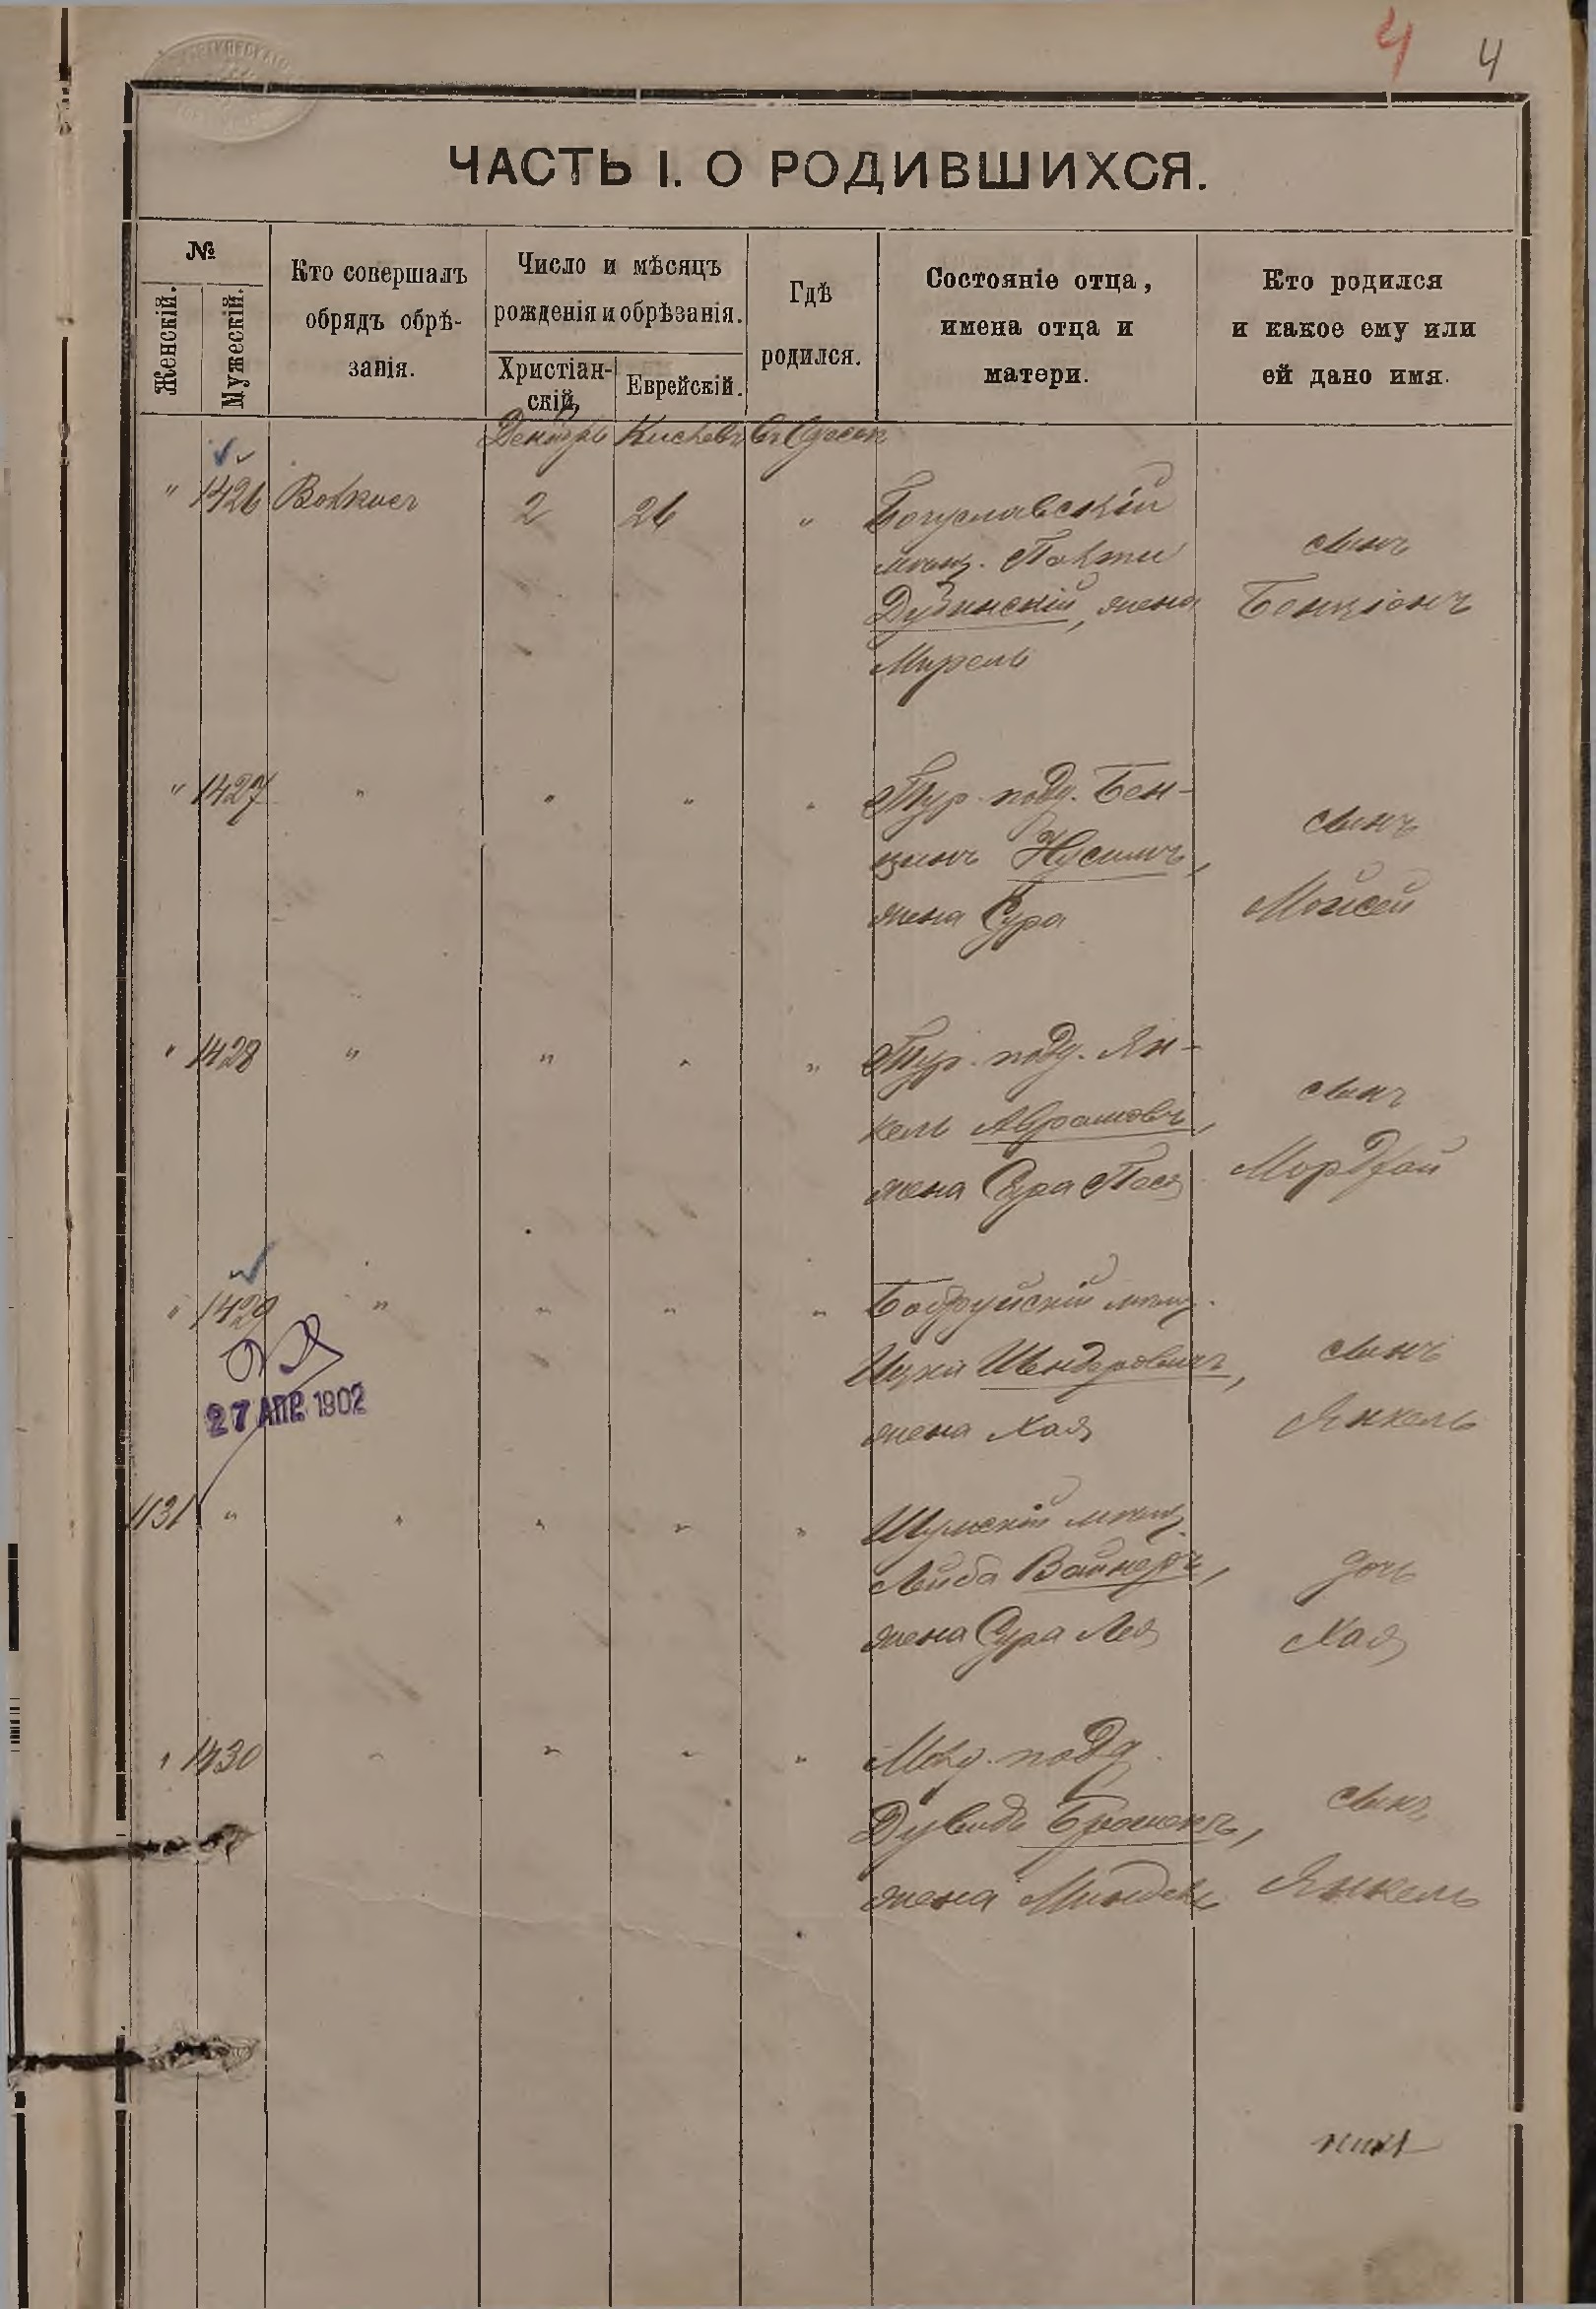 4 4
ЧАСТЬ I. О РОДИВШИХСЯ.
№
Женскій.
Мужескій.
Кто совершалъ
обрядъ обрѣ-
занія.
Число и мѣсяцъ
рожденія и обрѣзанія.
Христіан-
скій.
Еврейскій.
Гдѣ
родился.
Состояніе отца,
имена отца и
матери.
Кто родился
и какое ему или
ей дано имя.
Декабрь Кислевъ
" 1426 2 26 " Богуславскій
мѣщ.
Дубинскій, жена
Мирель
сынъ
Бенціонъ
" 1427 " " " " Тур. подд. Бен-
ціонъ Нусимъ,
жена Сура
сынъ
Мойсей
" 1428 " " " " Тур. подд. Ян-
кель Абрамовъ,
жена Сура Песя
сынъ
Мордхай
" 1429 " " " " Бобруйскій мѣщ.
Ицка Шендеровичъ,
жена Хая
сынъ
Янкель
27 АПР. 1902
1131 " " " " " Шумскій мѣщ.
Лейба Вайнеръ,
жена Сура Лея
дочь
Хая
" 1430 " " " " подд.
Дувидъ
жена Миндель
сынъ
Янкель